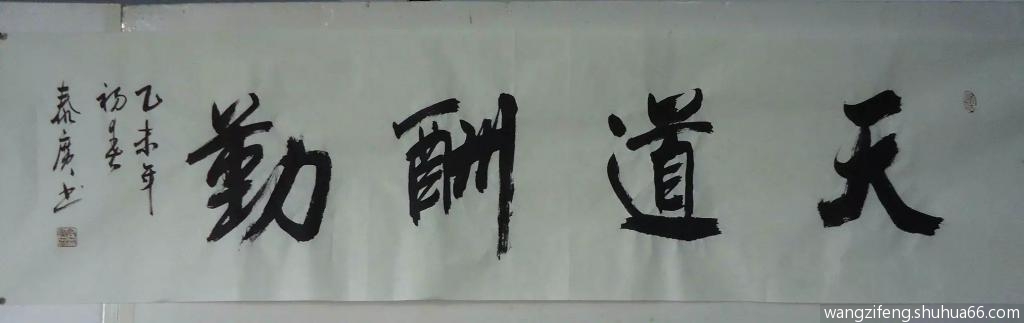 天道酬勤
乙未年
初春
泰广书
wangzifeng.shuhua66.com